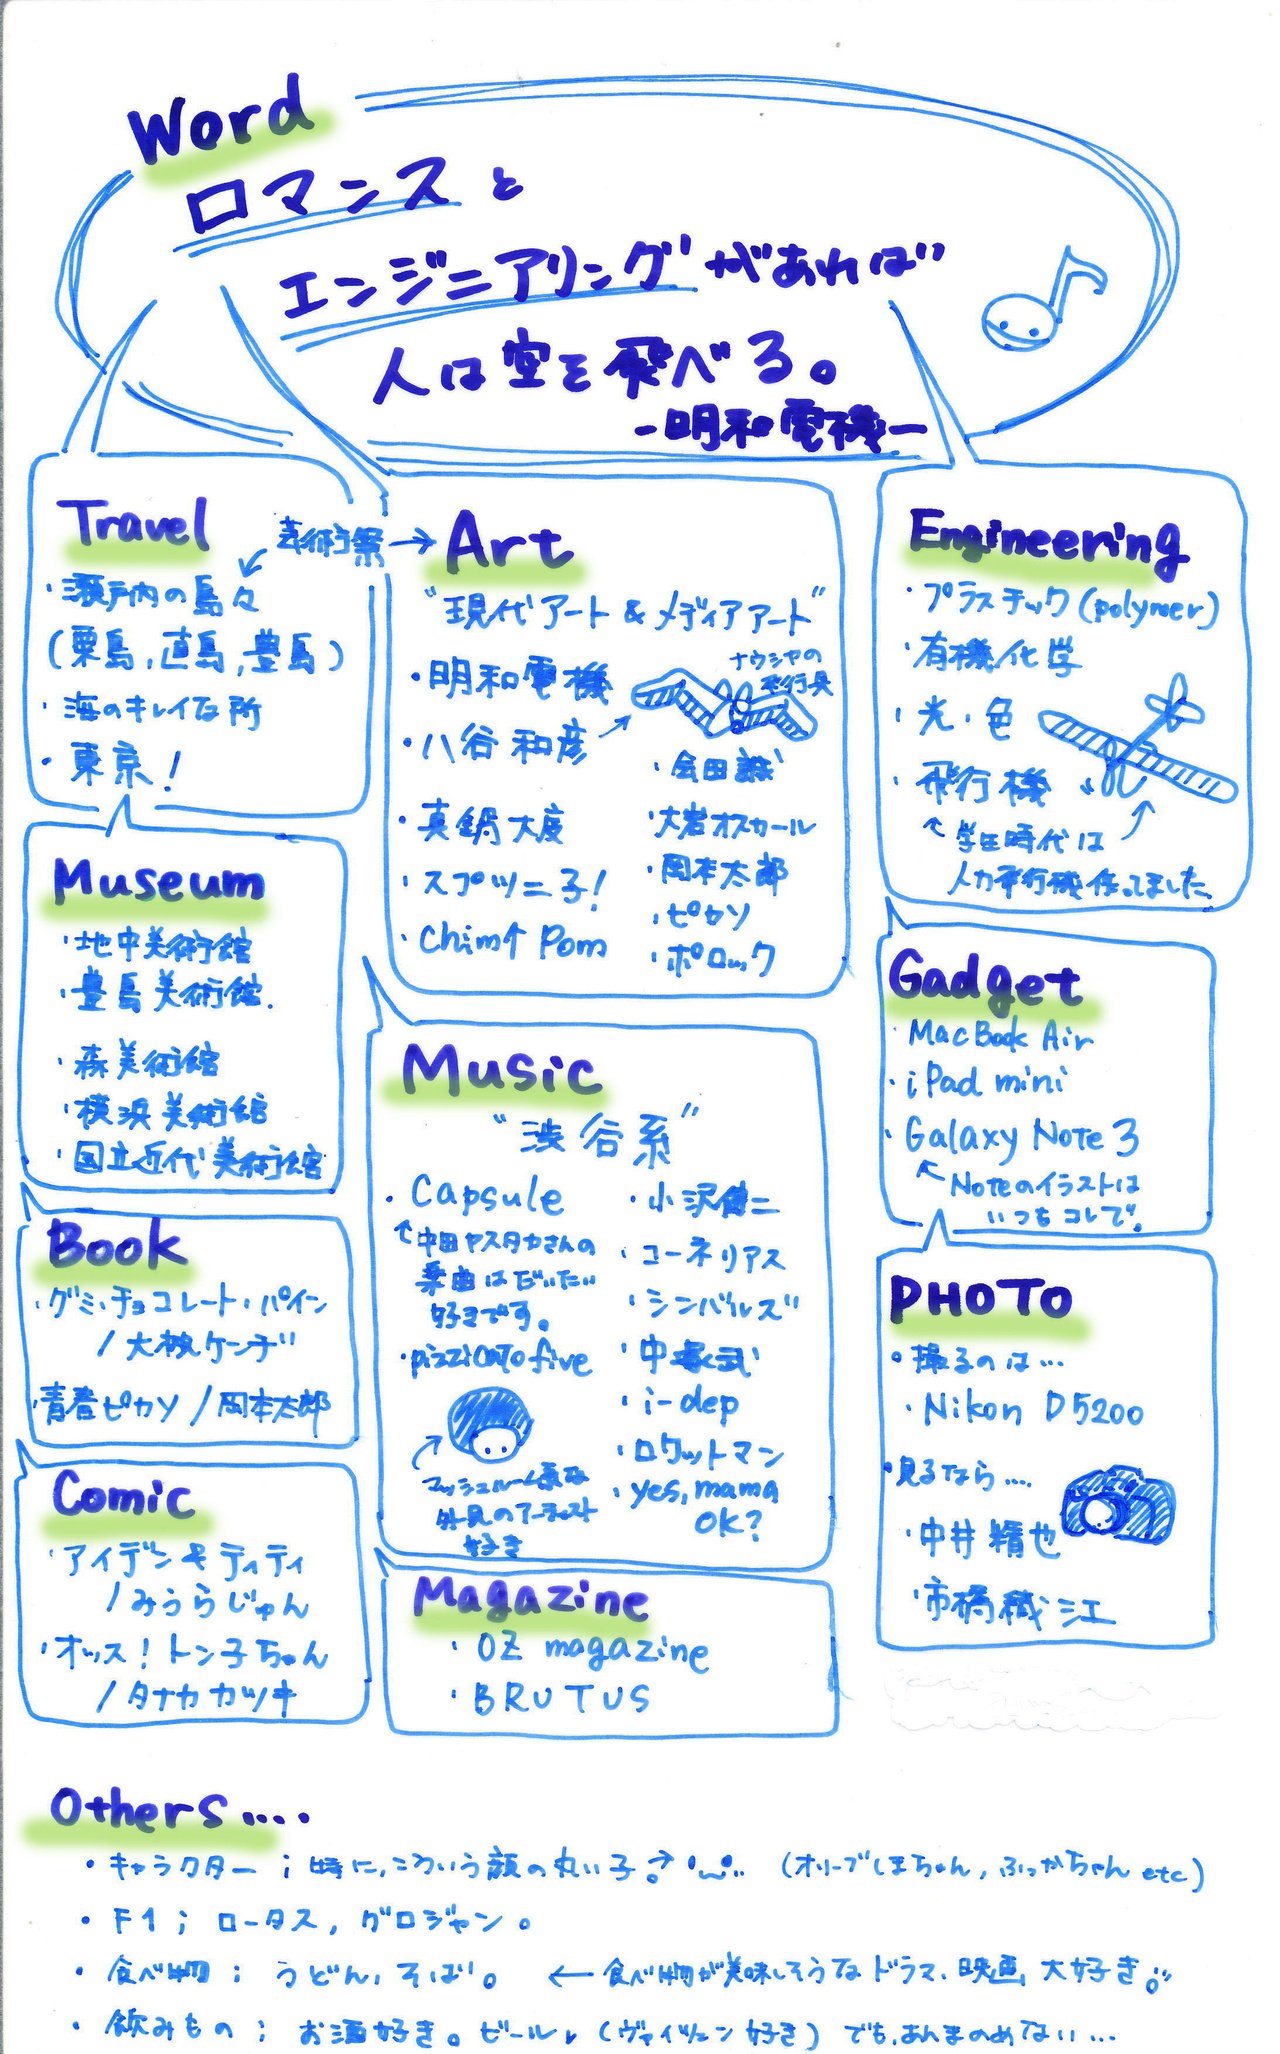 Word
ロマンスと
エンジニアリングがあれば
人は空を飛べる。
-明和電機-
Travel
芸術祭→
・瀬戸内の島々
(粟島,直島,豊島)
・海のキレイな所
・東京!
Art
"現代アート&メディアアート"
・明和電機
ナウシカの
飛行具
・八谷和彦
・真鍋大度
・スプツニ子!
・Chim↑Pom
・会田誠
・大岩オスカール
・岡本太郎
・ピカソ
・ポロック
Engineering
・プラスチック(polymer)
・有機化学
・光・色
・飛行機
↑学生時代は
人力飛行機作ってました。
Museum
・地中美術館
・豊島美術館.
・森美術館
・横浜美術館
・国立近代美術館
Music
"渋谷系"
・Capsule
↑中田ヤスタカさんの
楽曲はだいたい
好きです。
・pizzicato five
マッシュルーム系な
外見のアーティスト
好き
・小沢健二
・コーネリアス
・シンバルズ
・中塚武
・i-dep
・ロケットマン
・yes, mama
OK?
Gadget
・MacBook Air
・iPad mini
・Galaxy Note 3
↑Noteのイラストは
いつもコレで。
Book
・グミ・チョコレート・パイン
/大槻ケンヂ
・青春ピカソ/岡本太郎
PHOTO
・撮るのは…
・Nikon D5200
・見るなら….
・中井精也
・市橋織江
Comic
・アイデン&ティティ
/みうらじゅん
・オッス!トン子ちゃん
/タナカカツキ
Magazine
・OZ magazine
・BRUTUS
Others….
・キャラクター;特に,こういう顔の丸い子。→ (オリーブしまちゃん,ふっかちゃんetc)
・F1;ロータス,グロジャン。
・食べ物;うどん,そば。 ←食べ物が美味しそうなドラマ、映画大好き。
・飲みもの;お酒好き。ビール,(ヴァイツェン好き)でも,あんまのめない…